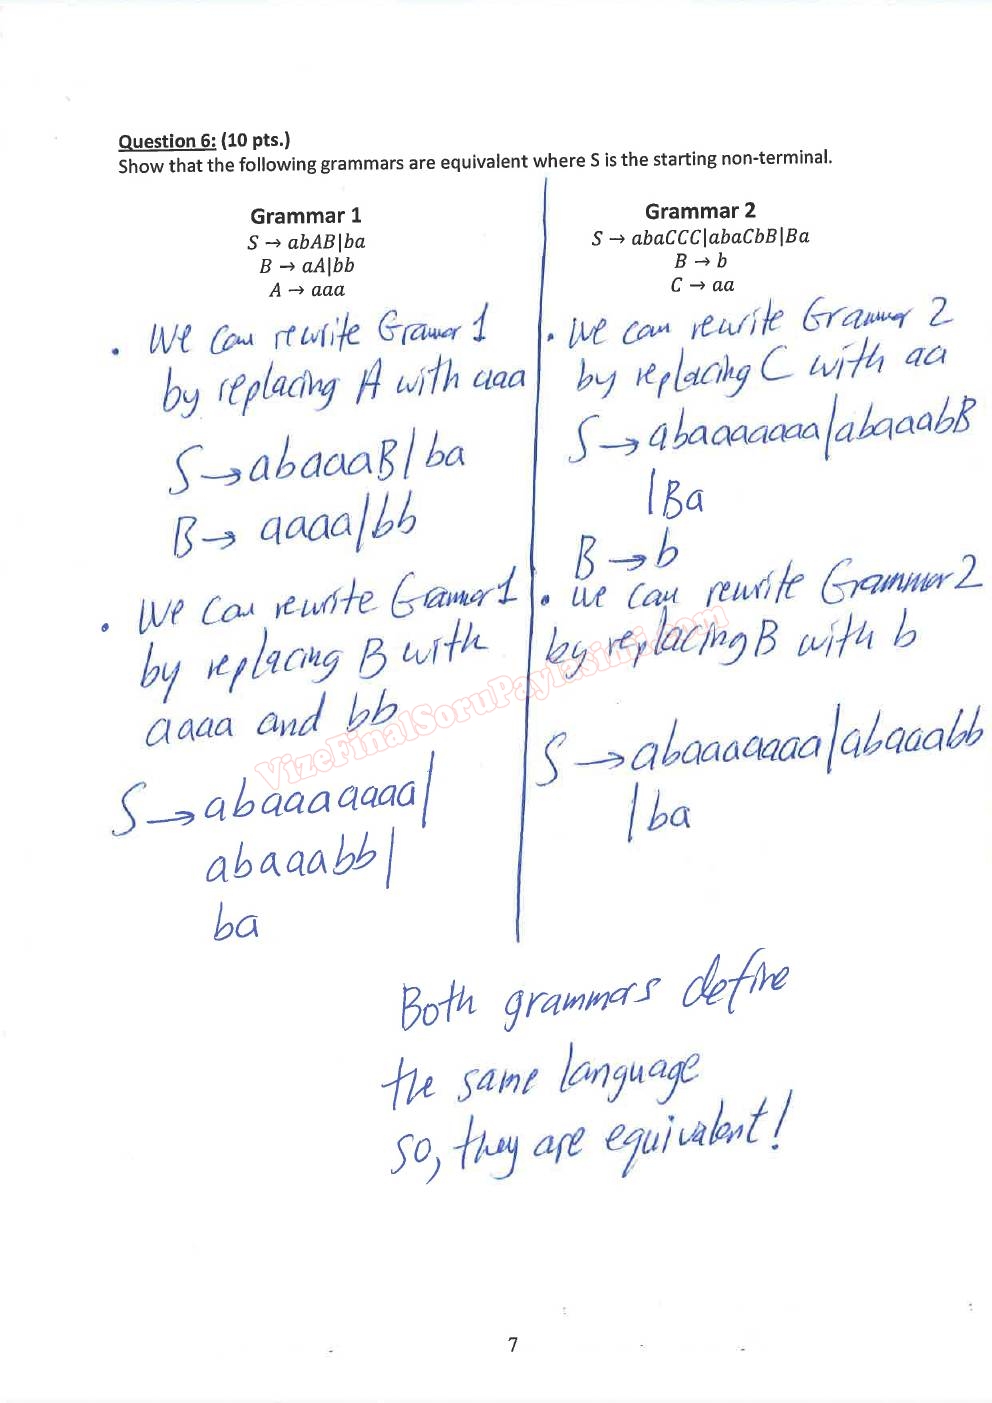 Question 6: (10 pts.)
Show that the following grammars are equivalent where S is the starting non-terminal.
Grammar 1
S → abAB|ba
B → aA|bb
A → aaa
. We can rewrite Gramar 1
by replacing A with aaa
S → abaaaB | ba
B → aaaa | bb
. We can rewrite Gramar 1
by replacing B with
aaaa and bb
S → abaaaaaaa |
abaaabb |
ba
Grammar 2
S → abaCCC|abaCbB|Ba
B → b
C → aa
. We can rewrite Grammar 2
by replacing C with aa
S → abaaaaaaa | abaaabB
| Ba
B → b
. we can rewrite Grammar 2
by replacing B with b
S → abaaaaaaa | abaaabb
| ba
Both grammars define
the same language
so, they are equivalent!
VizeFinalSoruPaylasimi.com
7